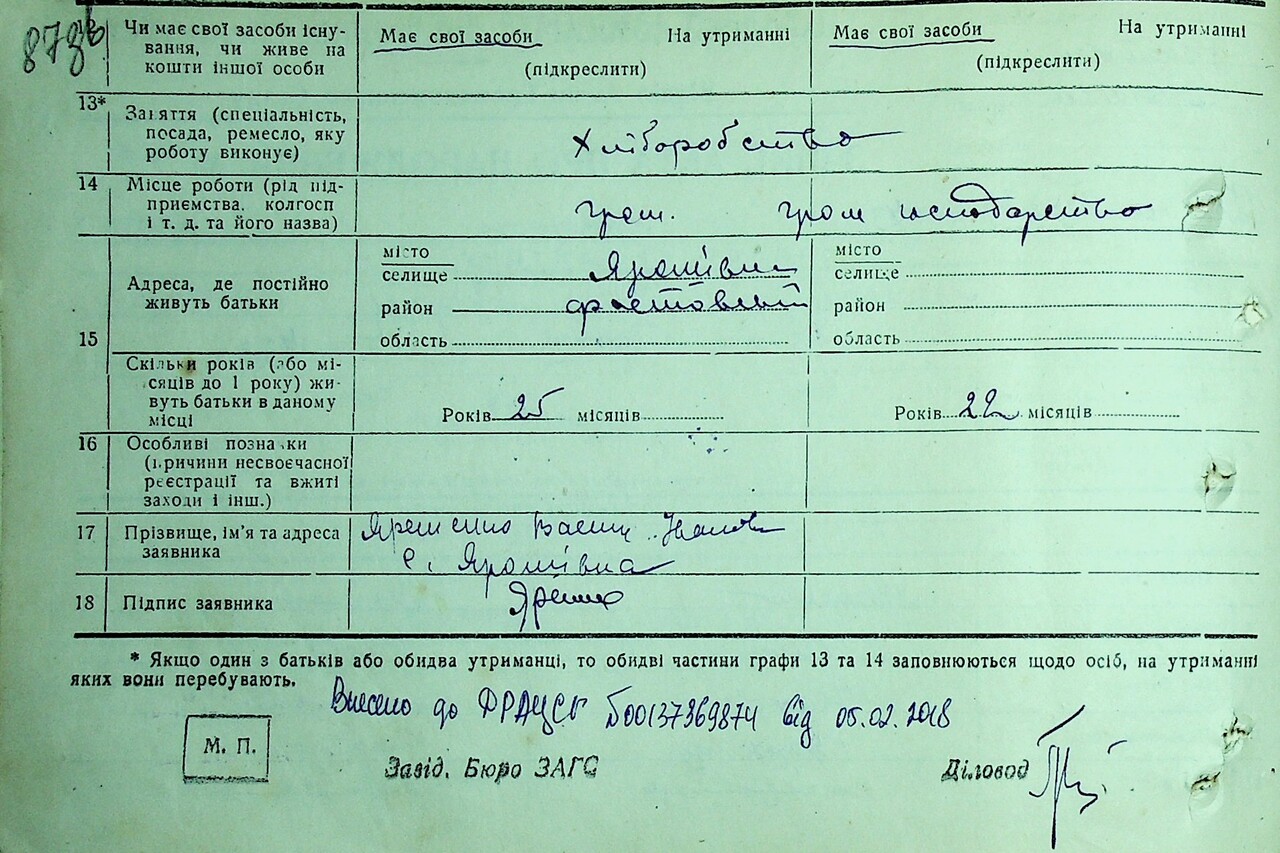 87зв
Чи має свої засоби існу-
вання, чи живе на
кошти іншої особи
Має свої засоби На утриманні
(підкреслити)
Має свої засоби На утриманні
(підкреслити)
13*
Заняття (спеціальність,
посада, ремесло, яку
роботу виконує)
Хліборобство
14
Місце роботи (рід під-
приємства, колгосп
і т. д. та його назва)
гром. гром господарство
15
Адреса, де постійно
живуть батьки
місто
селище Ярошівка
район Фастовський
область
місто
селище
район
область
Скільки років (або мі-
сяців до 1 року) жи-
вуть батьки в даному
місці
Років 25 місяців
Років 22 місяців
16
Особливі позначки
(причини несвоєчасної
реєстрації та вжиті
заходи і інш.)
17
Прізвище, ім'я та адреса
заявника
с. Ярошівка
18
Підпис заявника
* Якщо один з батьків або обидва утриманці, то обидві частини графи 13 та 14 заповнюються щодо осіб, на утриманні
яких вони перебувають.
Внесено до ДРАЦСГ 500137369874 від 05.02.2018
М. П.
Завід. Бюро ЗАГС
Діловод